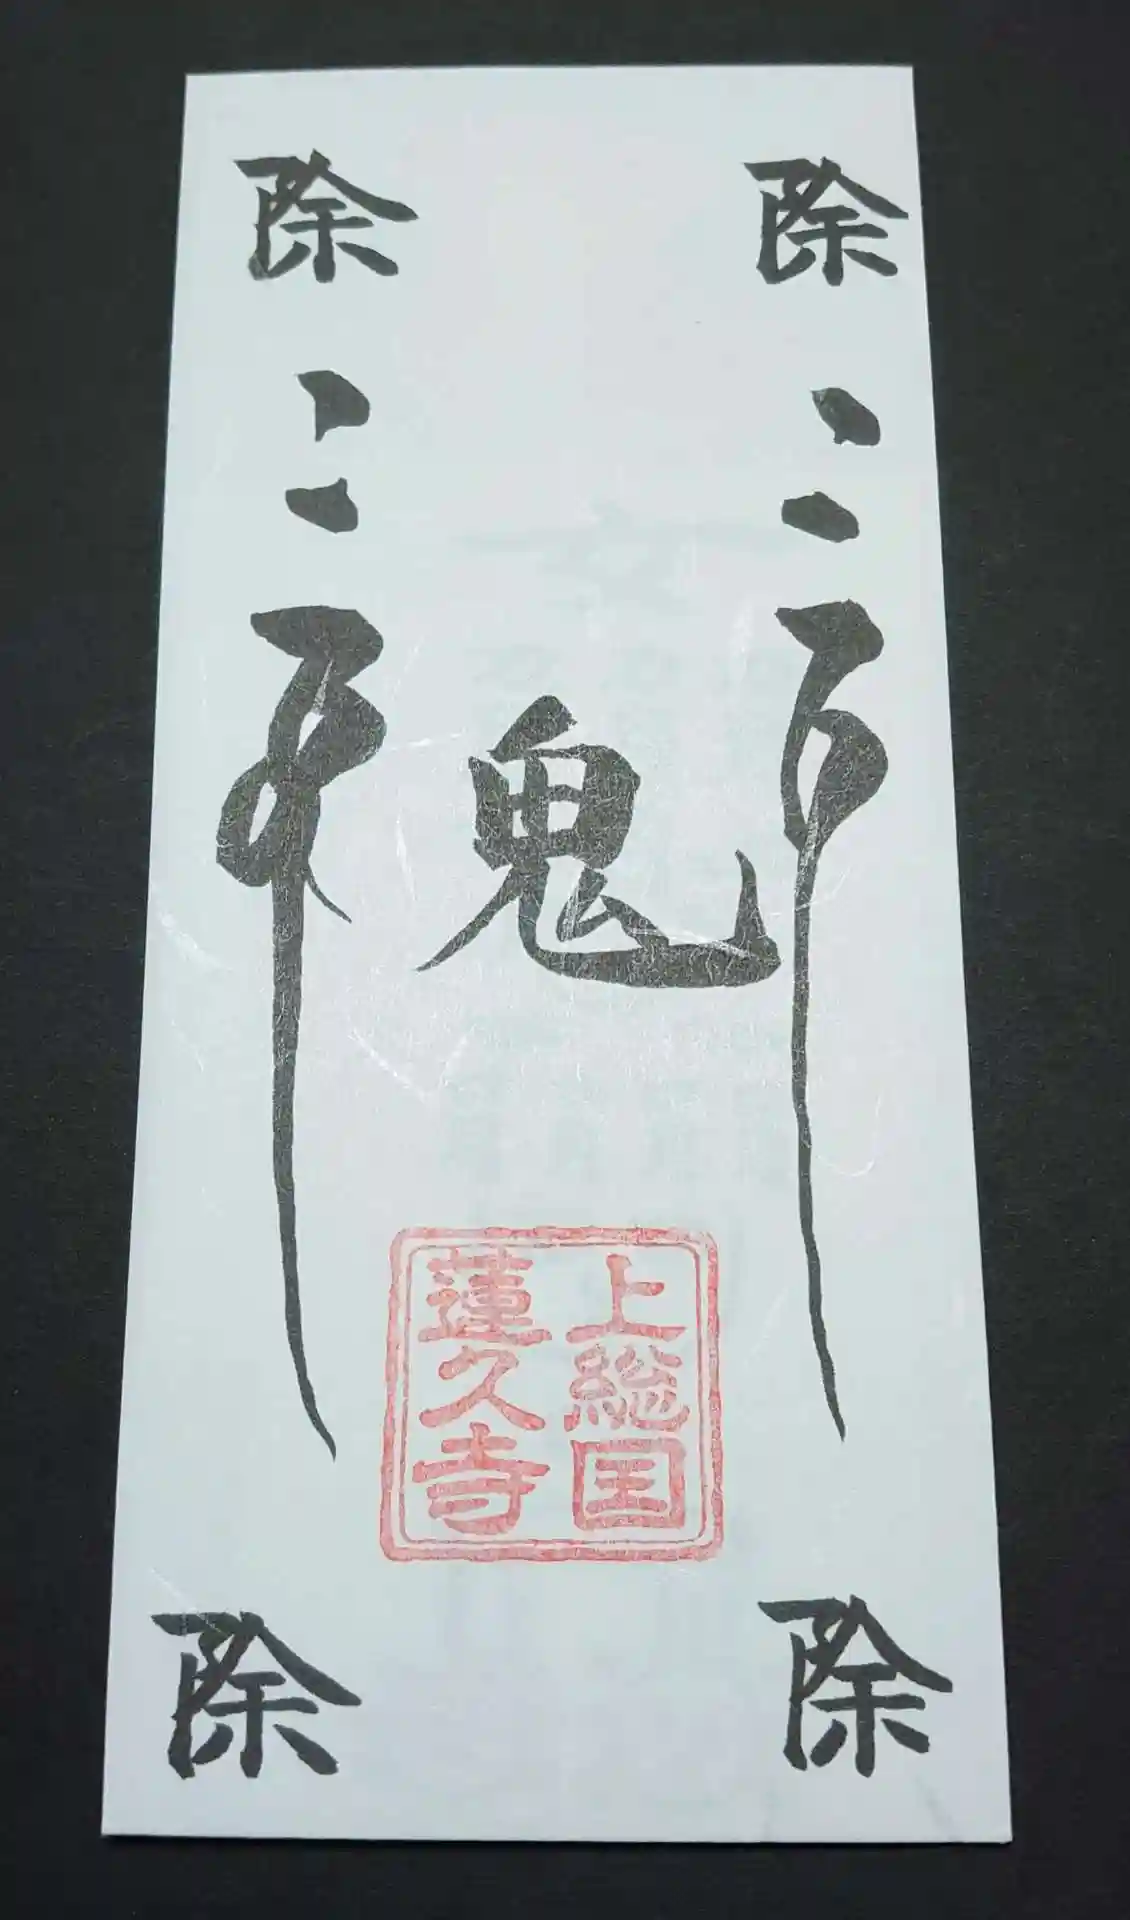 除 除
鬼
上総国
蓮久寺
除 除